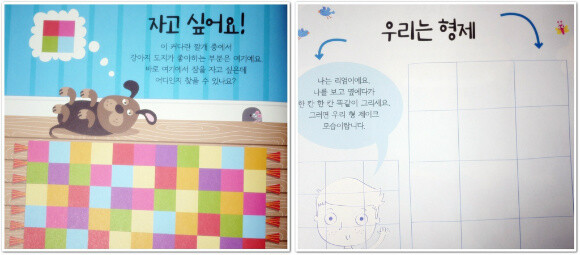 자고 싶어요!
이 커다란 깔개 중에서
강아지 도지가 좋아하는 부분은 여기예요.
바로 여기에서 잠을 자고 싶은데
어디인지 찾을 수 있나요?
우리는 형제
나는 리엄이에요.
나를 보고 옆에다가
한 칸 한 칸 똑같이 그리세요.
그러면 우리 형 제이크
모습이랍니다.